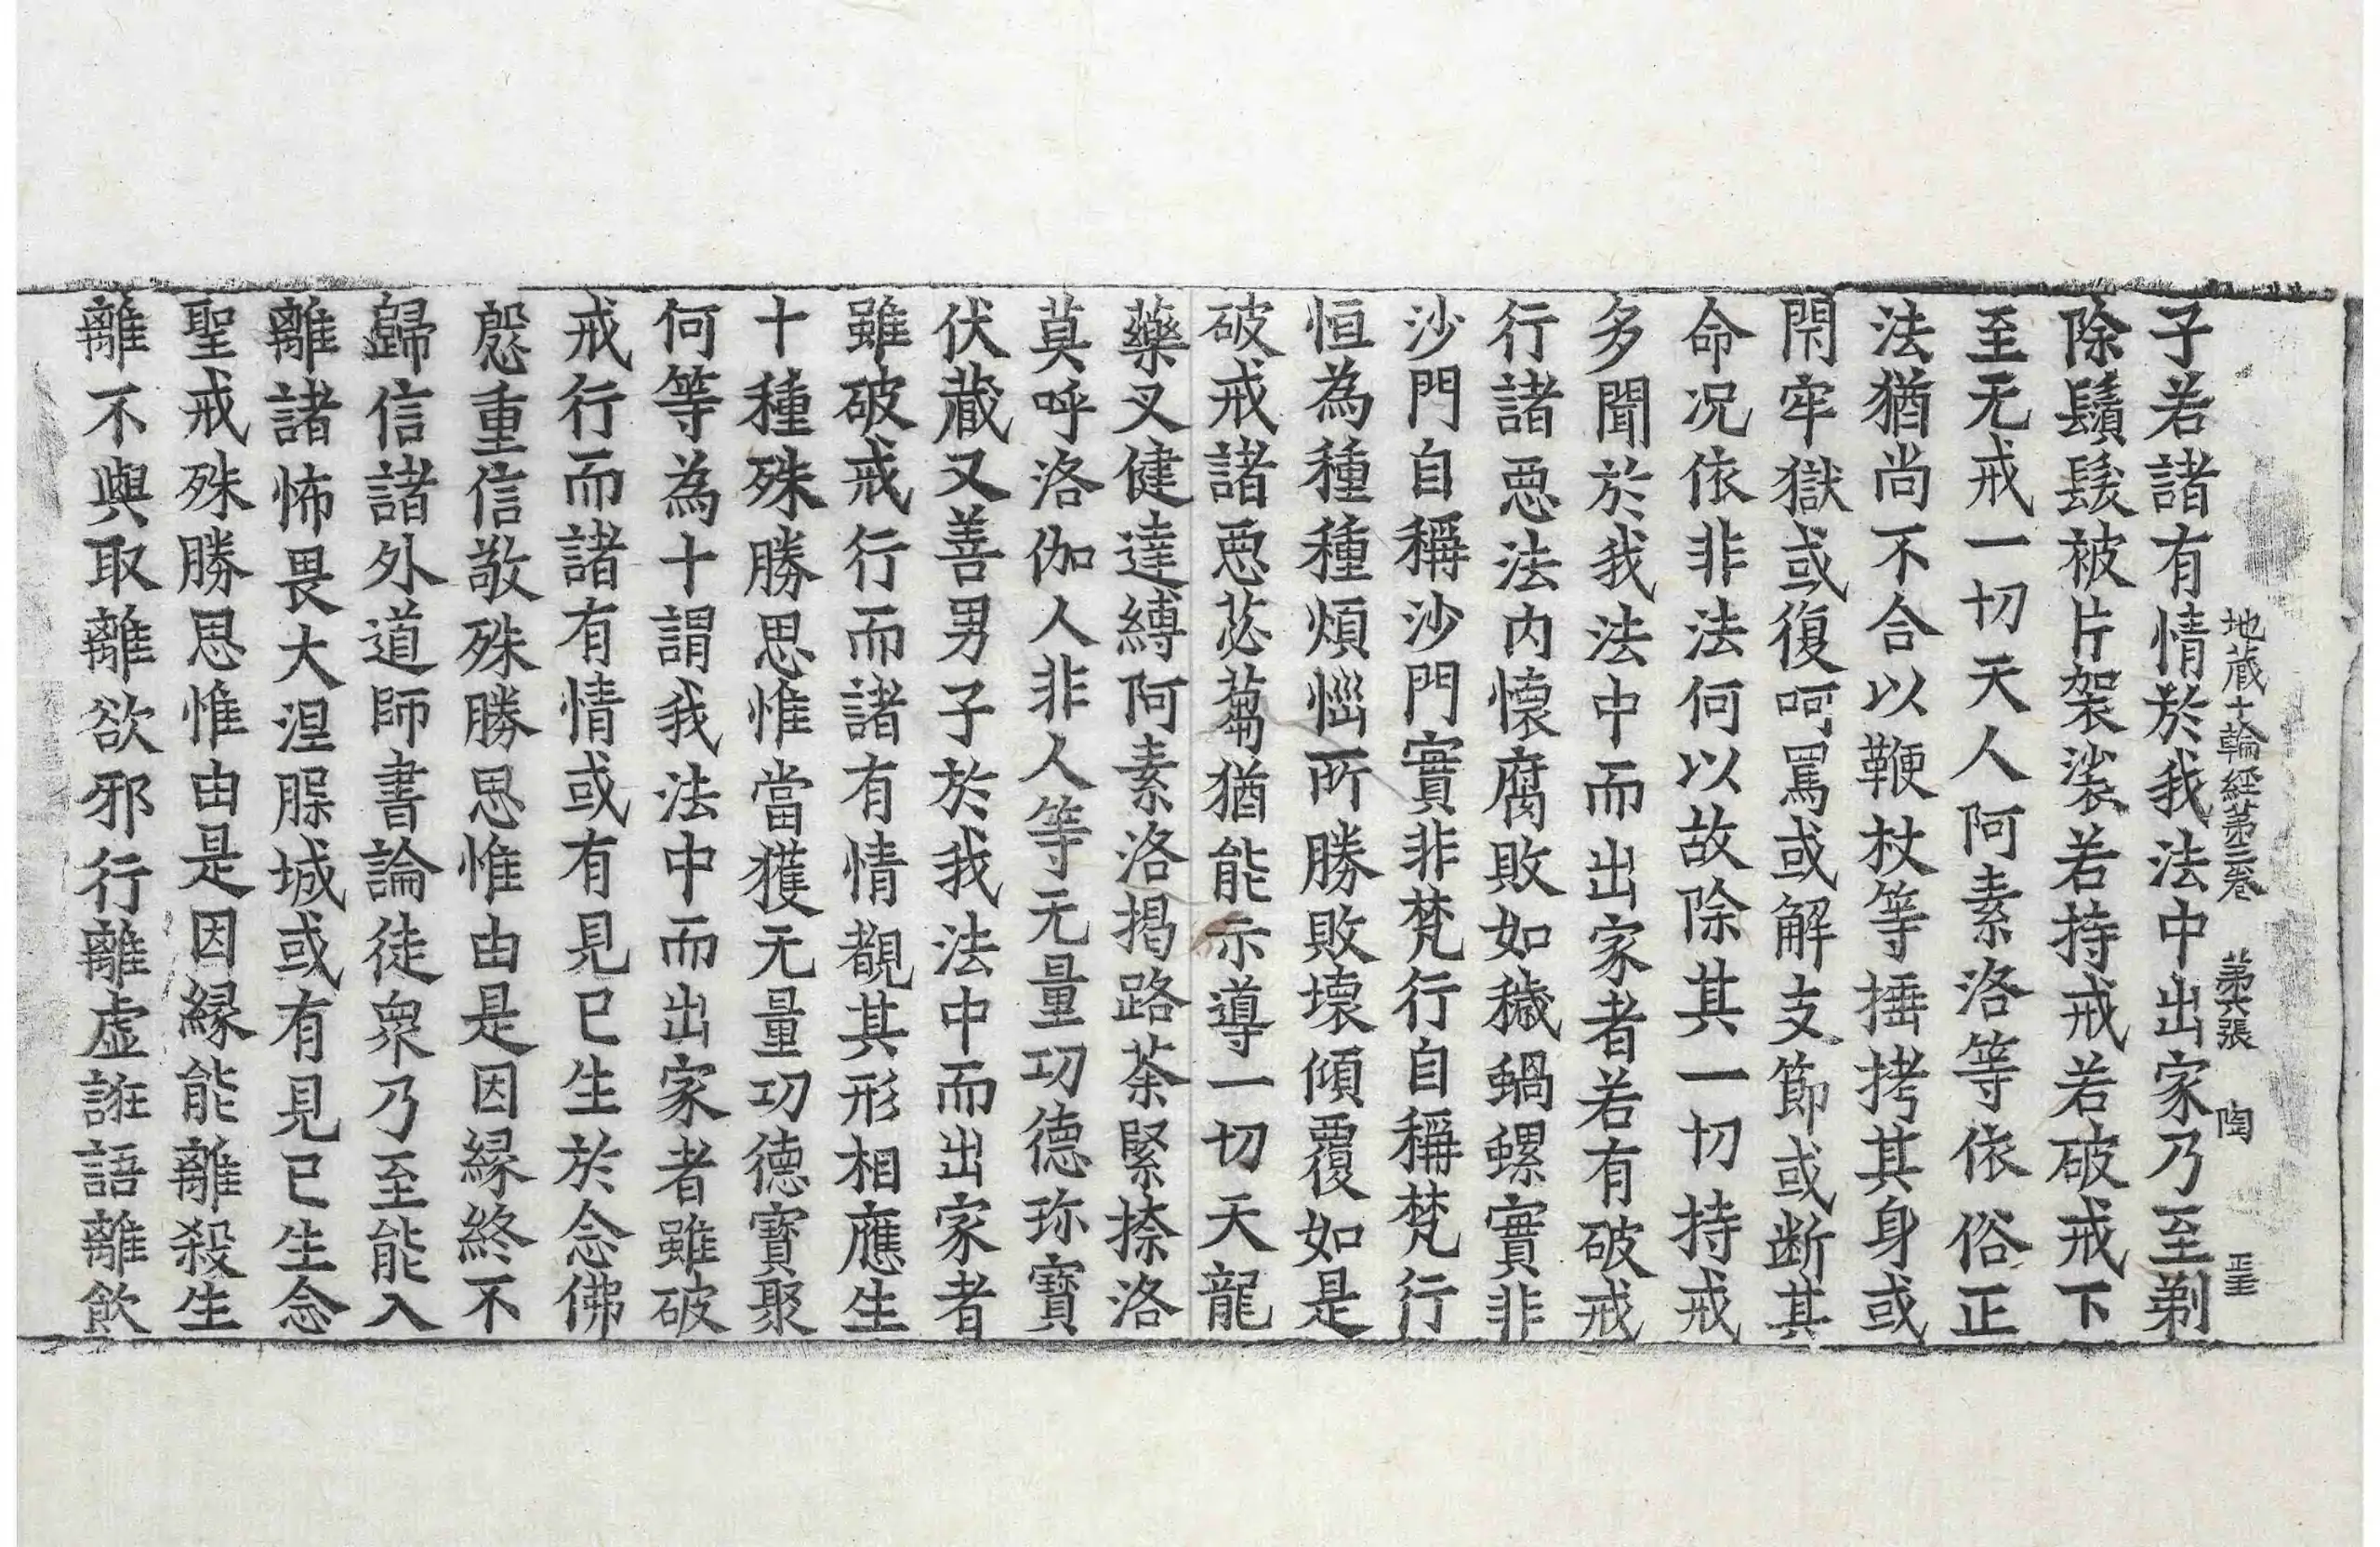 地藏十輪經第三卷 第六張 陶
子若諸有情於我法中出家乃至剃
除鬚髮被片袈裟若持戒若破戒下
至无戒一切天人阿素洛等依俗正
法猶尚不合以鞭杖等捶拷其身或
閇牢獄或復呵罵或解支節或断其
命況依非法何以故除其一切持戒
多聞於我法中而出家者若有破戒
行諸惡法内懷腐敗如穢蝸螺實非
沙門自稱沙門實非梵行自稱梵行
恒為種種煩惱所勝敗壞傾覆如是
破戒諸惡苾蒭猶能示導一切天龍
藥叉健達縛阿素洛揭路荼緊捺洛
莫呼洛伽人非人等无量功德珎寶
伏藏又善男子於我法中而出家者
雖破戒行而諸有情覩其形相應生
十種殊勝思惟當獲无量功德寶聚
何等為十謂我法中而出家者雖破
戒行而諸有情或有見已生於念佛
慇重信敬殊勝思惟由是因縁終不
歸信諸外道師書論徒衆乃至能入
離諸怖畏大涅槃城或有見已生念
聖戒殊勝思惟由是因縁能離殺生
離不與取離欲邪行離虛誑語離飲